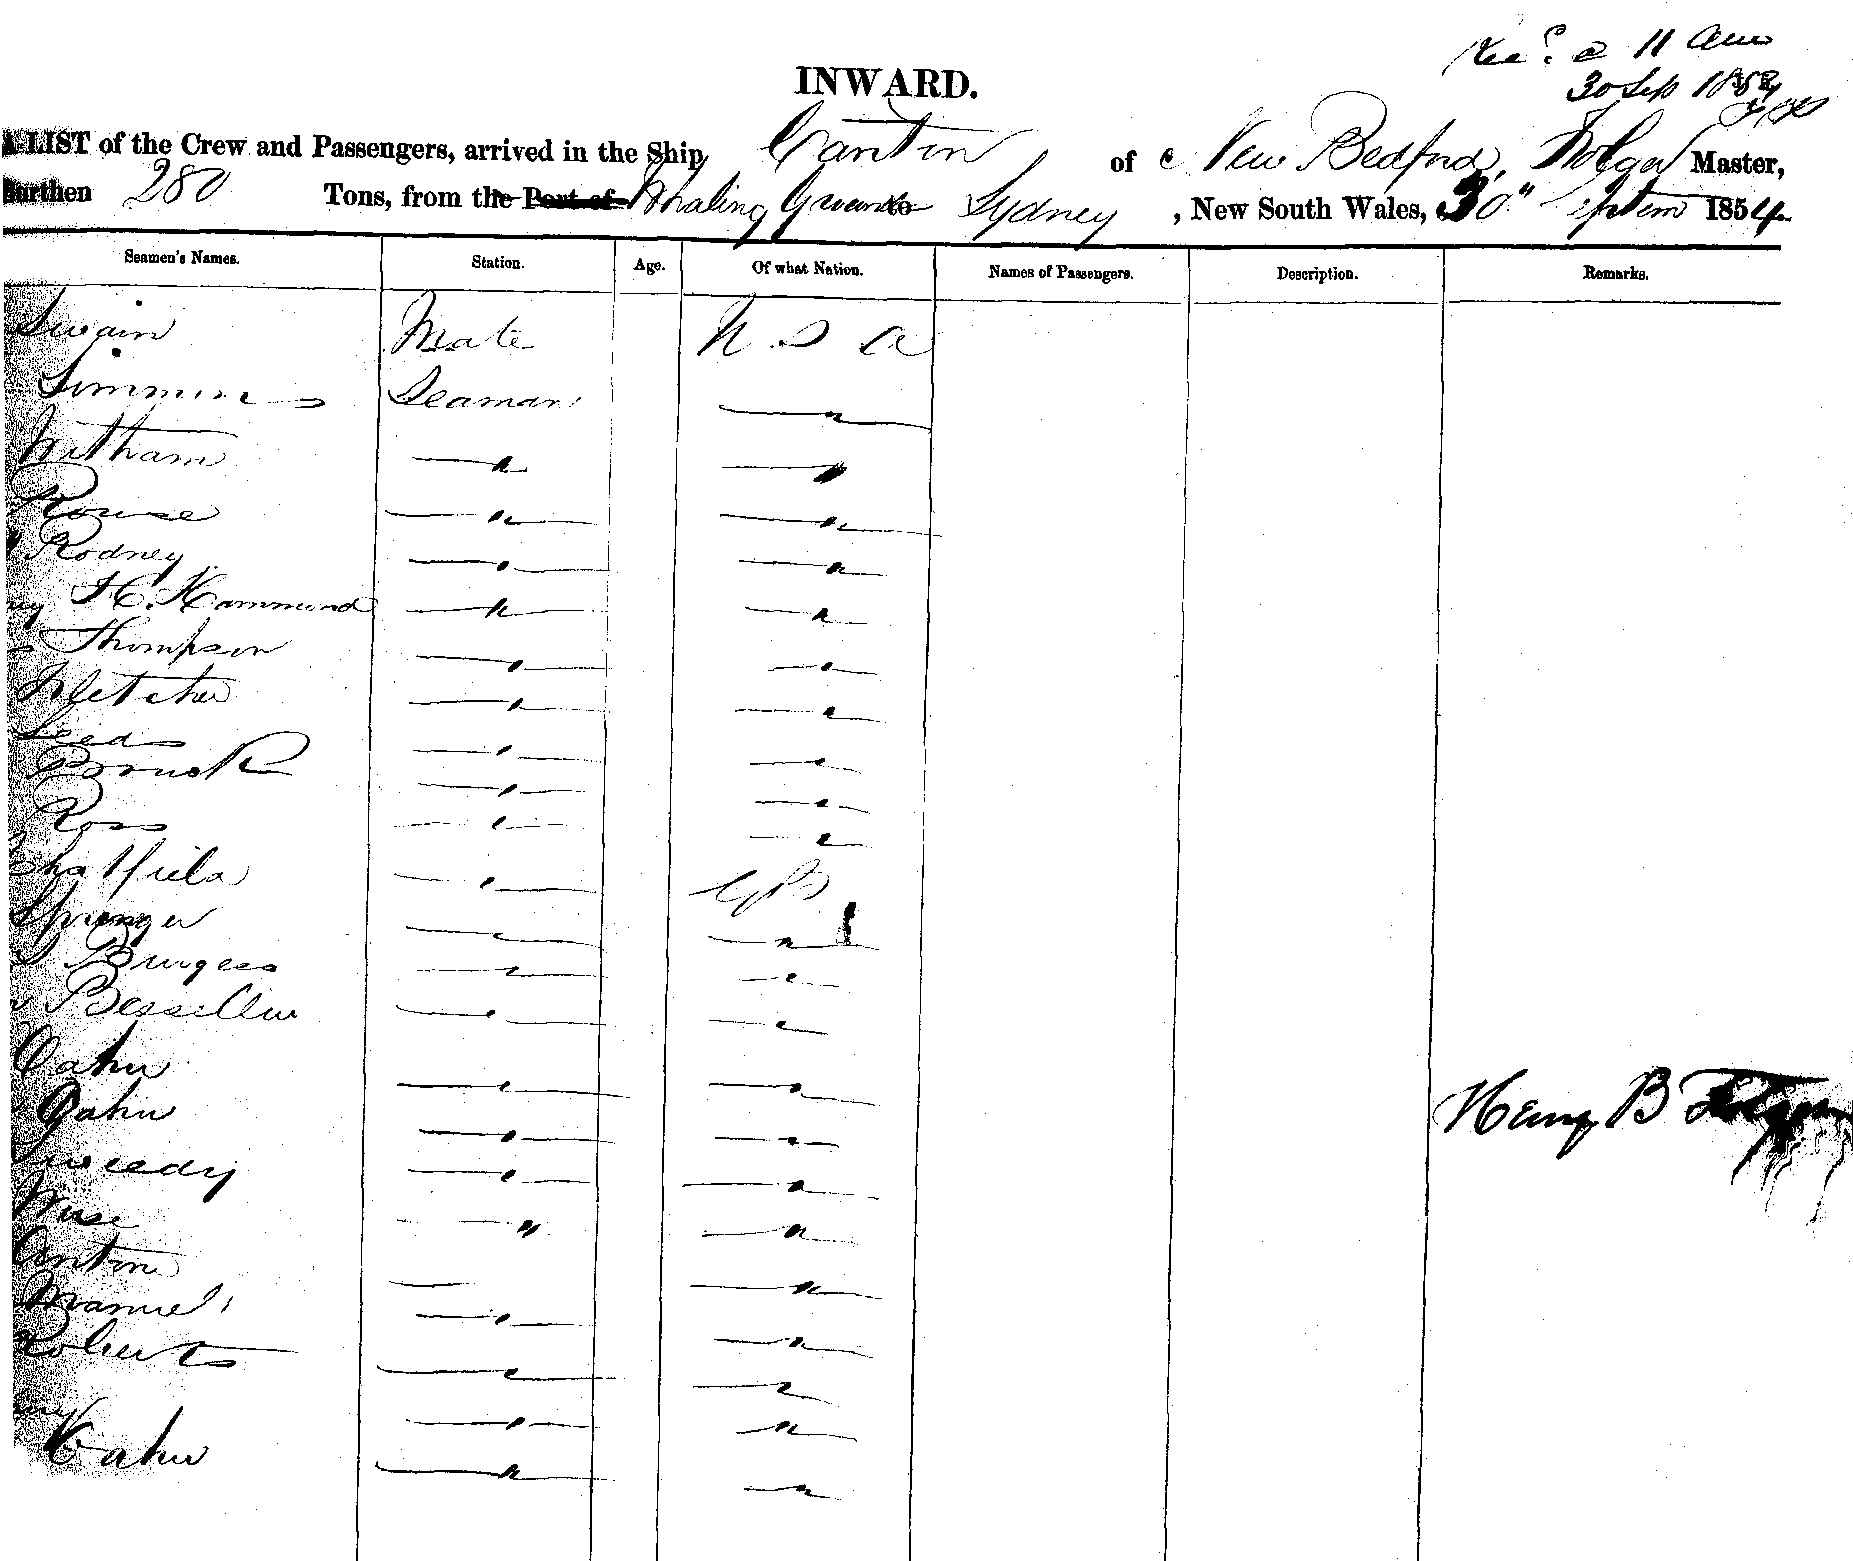 Rec.d @ 11 am
30 Sep 1854
INWARD.
A LIST of the Crew and Passengers, arrived in the Ship Canton of New Bedford, Folger Master,
Burthen 280 Tons, from the Port of Whaling Grounds to Sydney, New South Wales, 30" Septem 1854
Seamen's Names. Station. Age. Of what Nation. Names of Passengers. Description. Remarks.
Swain Mate U S A
Simmons Seaman "
Witham " "
Rouse " "
Rodney " "
H. Hammond " "
Thompson " "
Fletcher " "
Leeds " "
" "
Ross " "
Chatfield " G B
Springer " "
Burgess " "
" "
Oahu " "
Oahu " " Henry B Folger
Tweedy " "
Wise " "
Antone " "
Manuel " "
Roberts " "
" "
Oahu " "